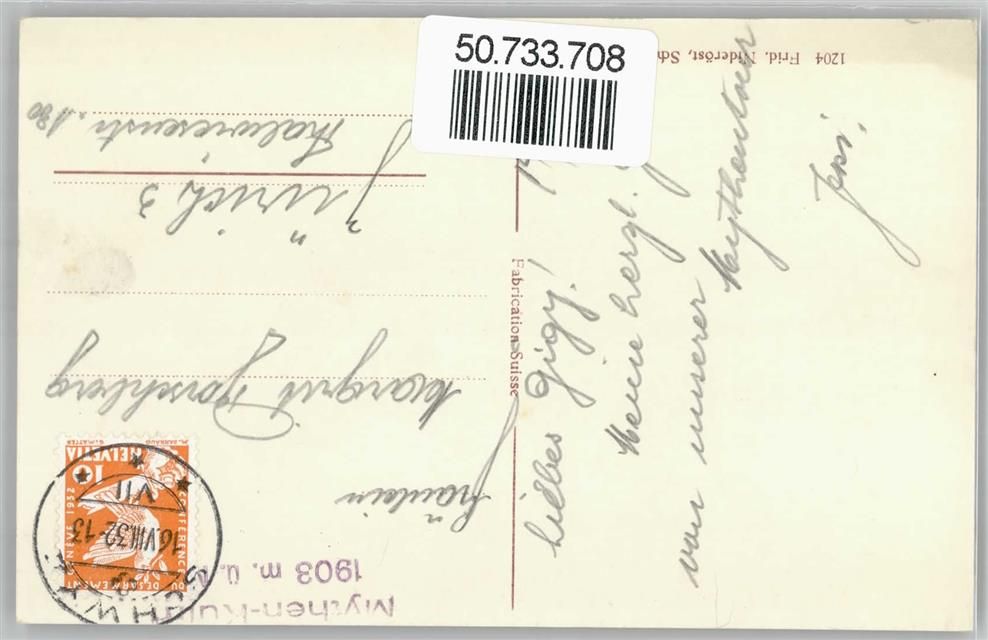 50.733.708
1204 Frid. Nideröst, Sch
Fabrication Suisse
Liebes Gigy!
Meine herzl.
von unserer Mythentour
Fräulein
Margrit
Zürich 3
Talwiesenstr. 180
Mythen-Kulm
1903 m. ü. M
HELVETIA
10
CONFERENCE
DU DESARMEMENT
GENÈVE 1932
SCHWYZ
16.VIII.32-13
VII